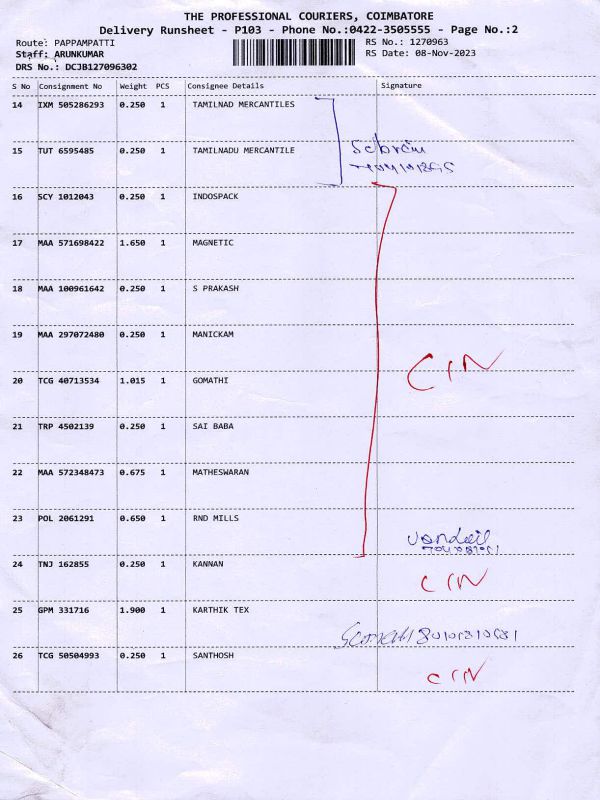 THE PROFESSIONAL COURIERS, COIMBATORE
Delivery Runsheet - P103 - Phone No.:0422-3505555 - Page No.:2
Route: PAPPAMPATTI RS No.: 1270963
Staff: ARUNKUMAR RS Date: 08-Nov-2023
DRS No.: DCJB127096302
S No Consignment No Weight PCS Consignee Details Signature
14 IXM 505286293 0.250 1 TAMILNAD MERCANTILES
15 TUT 6595485 0.250 1 TAMILNADU MERCANTILE
16 SCY 1012043 0.250 1 INDOSPACK
17 MAA 571698422 1.650 1 MAGNETIC
18 MAA 100961642 0.250 1 S PRAKASH
19 MAA 297072480 0.250 1 MANICKAM
CIN
20 TCG 40713534 1.015 1 GOMATHI
21 TRP 4502139 0.250 1 SAI BABA
22 MAA 572348473 0.675 1 MATHESWARAN
23 POL 2061291 0.650 1 RND MILLS
24 TNJ 162855 0.250 1 KANNAN
CIN
25 GPM 331716 1.900 1 KARTHIK TEX
26 TCG 50504993 0.250 1 SANTHOSH
CIN